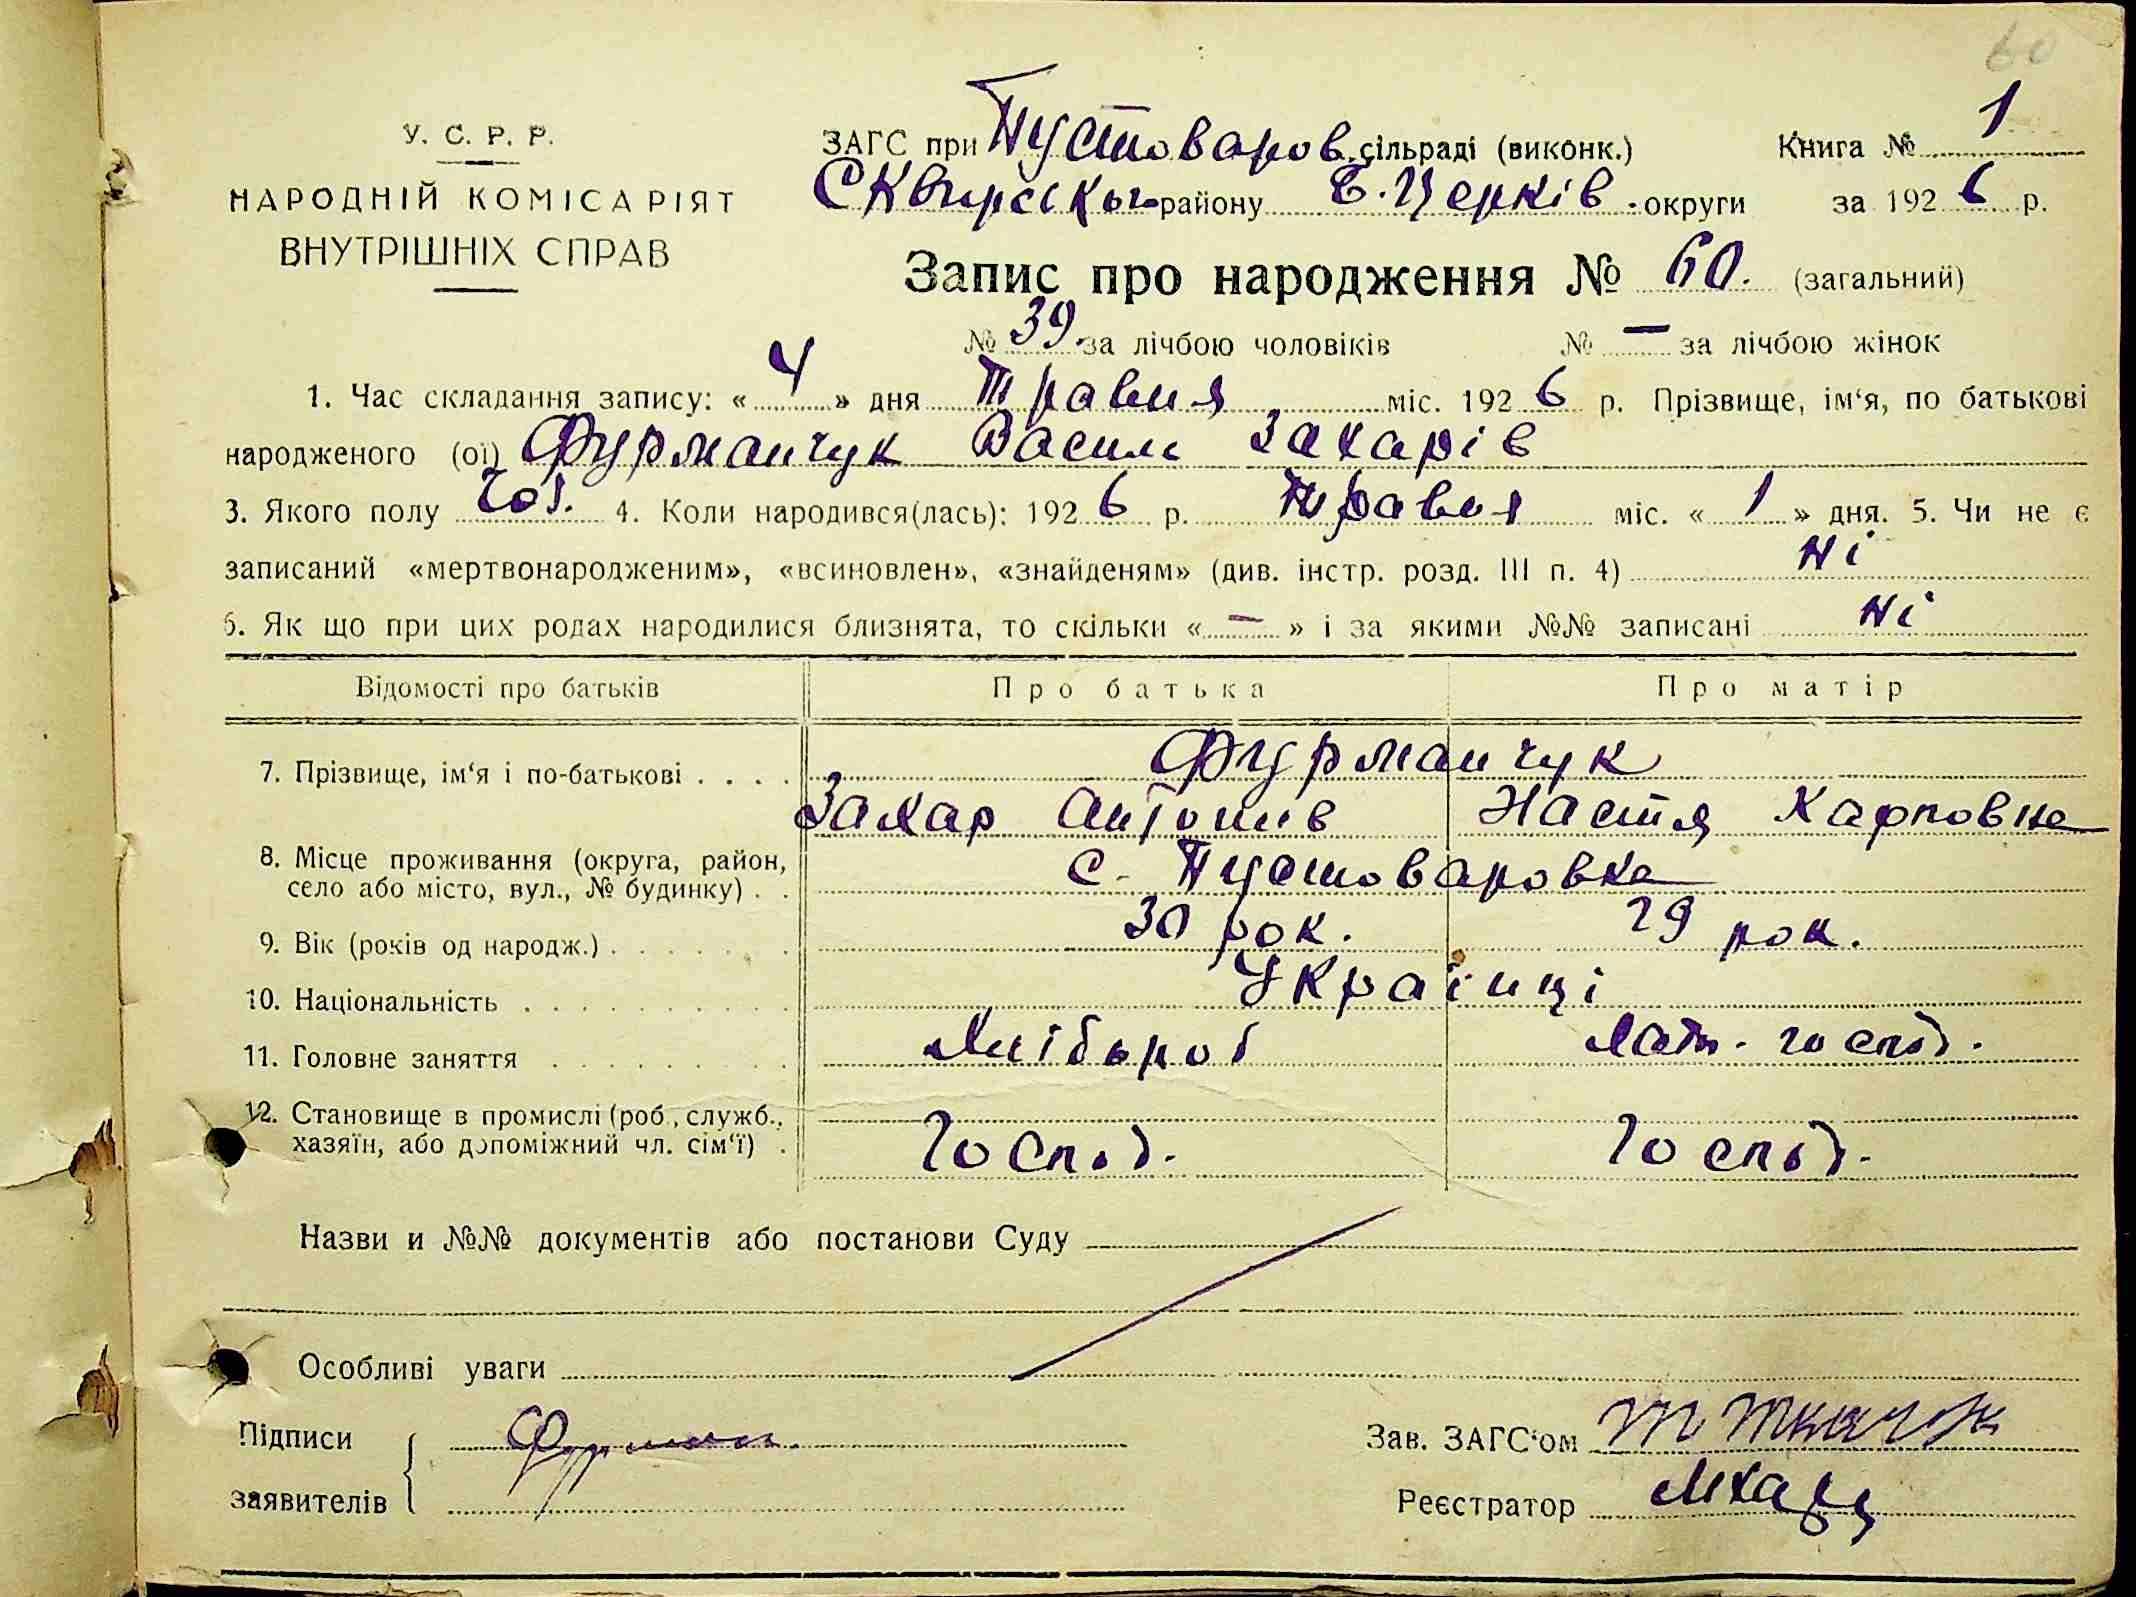 60
У. С. Р. Р.
НАРОДНІЙ КОМІСАРІЯТ
ВНУТРІШНІХ СПРАВ
ЗАГС при Пустоваров. сільраді (виконк.) Книга № 1
Сквирськ. району Б. Церків. округи за 1926 р.
Запис про народження № 60. (загальний)
№ 39. за лічбою чоловіків № — за лічбою жінок
1. Час складання запису: « 4 » дня Травня міс. 1926 р. Прізвище, ім‘я, по батькові
народженого (ої) Фурманчук Василь Захарів
3. Якого полу чол. 4. Коли народився(лась): 1926 р. Травня міс. « 1 » дня. 5. Чи не є
записаний «мертвонародженим», «всиновлен», «знайденям» (див. інстр. розд. III п. 4) Ні
6. Як що при цих родах народилися близнята, то скільки « — » і за якими №№ записані Ні
Відомості про батьків Про батька Про матір
7. Прізвище, ім‘я і по-батькові . . . . Фурманчук
Захар Антонів Настя Карповна
8. Місце проживання (округа, район, село або місто, вул., № будинку) . . с. Пустоваровка
9. Вік (років од народж.) . . . . . . . 30 рок. 29 рок.
10. Національність . . . . . . . . . . Українці
11. Головне заняття . . . . . . . . . Хлібороб Хатн. господ.
12. Становище в промислі (роб., служб., хазяїн, або допоміжний чл. сім‘ї) . Господ. Господ.
Назви и №№ документів або постанови Суду
Особливі уваги
Підписи Зав. ЗАГС‘ом
заявителів Реєстратор